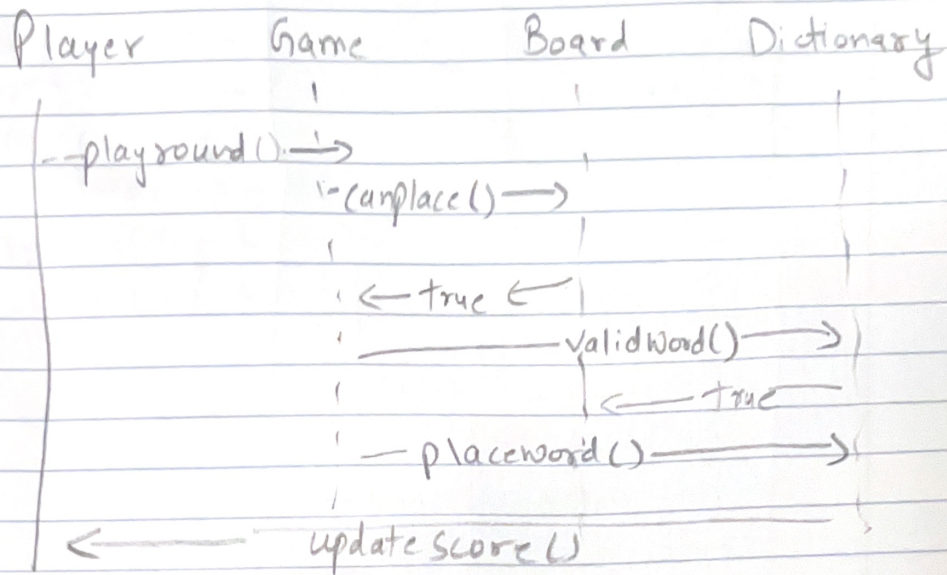 Player Game Board Dictionary
playround()
canplace()
true
validword()
true
placeword()
updatescore()